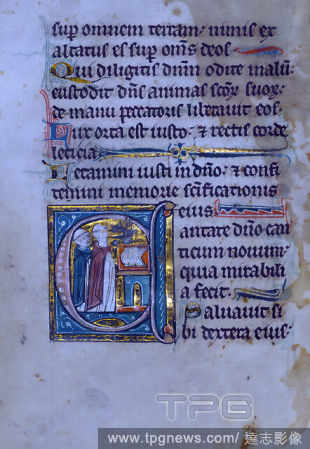 sup omnem terram: nimis ex
altatus es sup om̄s deos.
Qui diligitis dnm̄ odite malū:
custodit dn̄s animas scōꝝ suoꝝ:
de manu peccatoris liberavit eos.
Lux orta est iusto: & rectis corde
leticia.
Letamini iusti in dn̄o: & confi
temini memorie sc̄ificationis
eius.
Cantate dn̄o can
ticum novum:
quia mirabili
a fecit.
Salvavit si
bi dextera eius:
TPG
www.tpgnews.com/ 達志影像